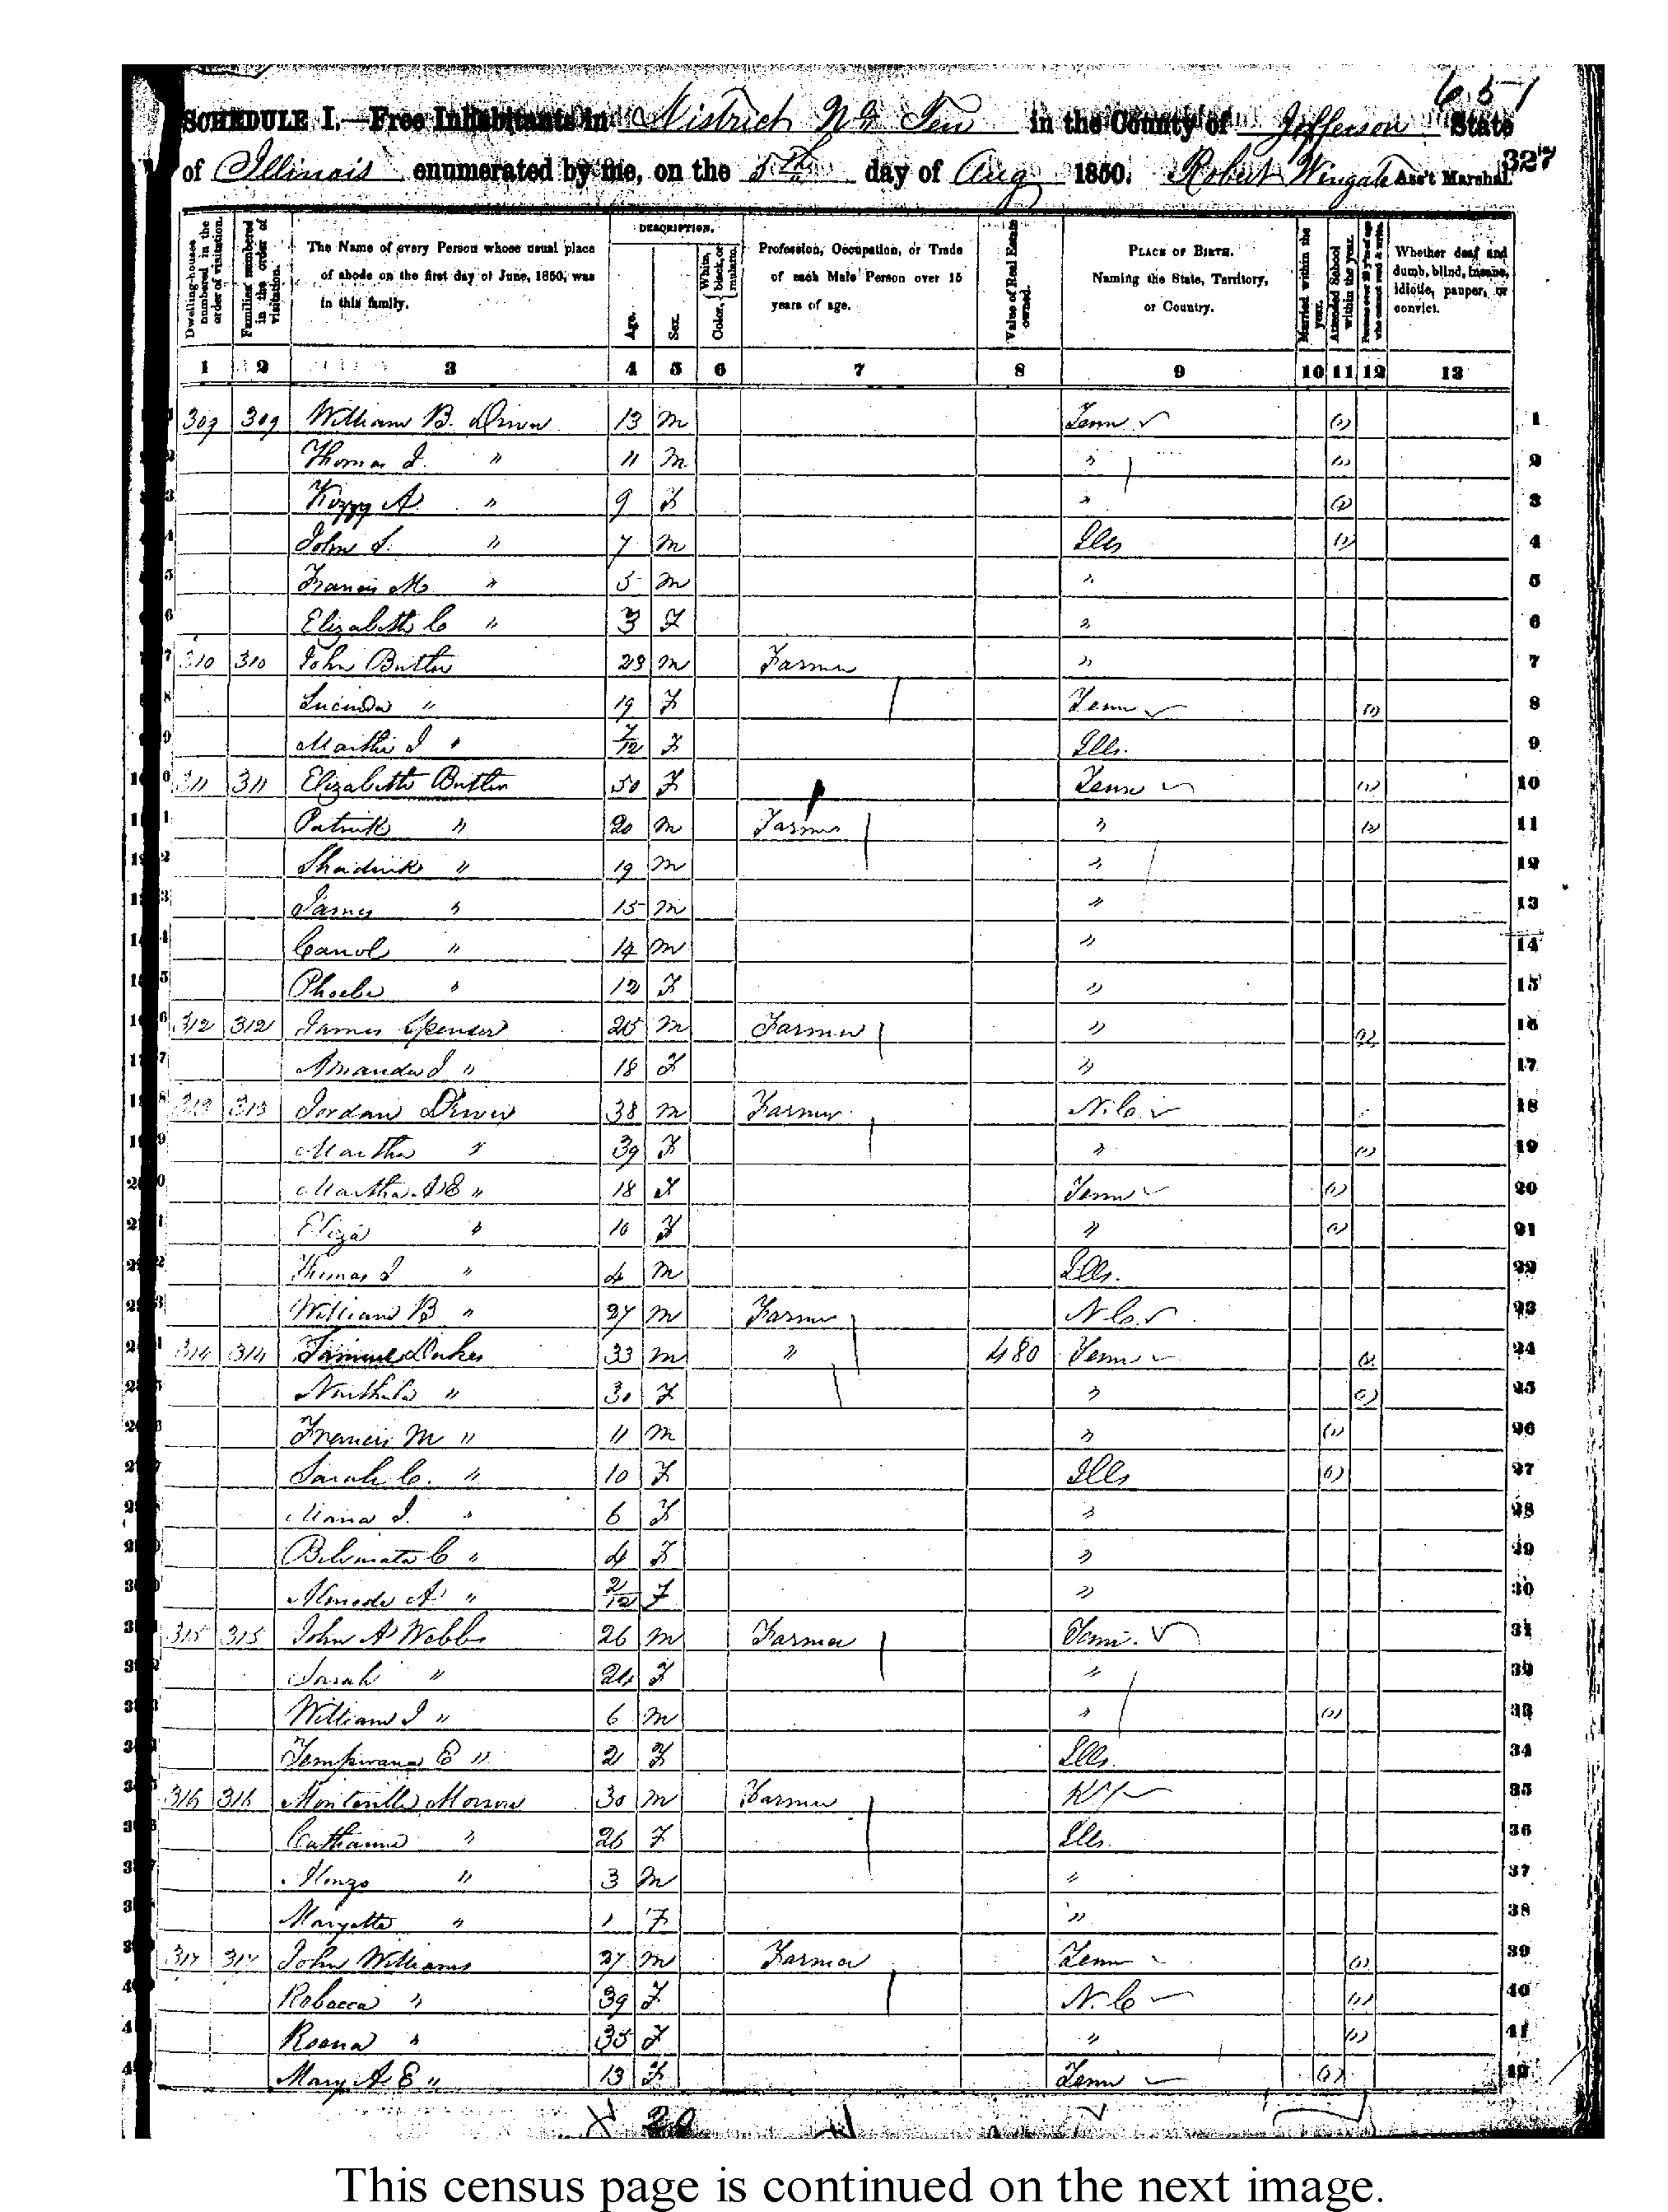 651
SCHEDULE I.—Free Inhabitants in District No Ten in the County of Jefferson State
of Illinois enumerated by me, on the 5th day of Aug 1850. Robert Wingate Ass't Marshal.
327
Dwelling-houses numbered in the order of visitation.
Families numbered in the order of visitation.
The Name of every Person whose usual place of abode on the first day of June, 1850, was in this family.
DESCRIPTION.
Age.
Sex.
Color, White, black, or mulatto.
Profession, Occupation, or Trade of each Male Person over 15 years of age.
Value of Real Estate owned.
PLACE OF BIRTH. Naming the State, Territory, or Country.
Married within the year.
Attended School within the year.
Persons over 20 y'rs of age who cannot read & write.
Whether deaf and dumb, blind, insane, idiotic, pauper, or convict.
1 2 3 4 5 6 7 8 9 10 11 12 13
309 309 William B. 13 M Tenn 1
Thomas J. " 11 M " 2
Kizzy A " 9 F " 3
John S. " 7 M Ills 4
Francis M " 5 M " 5
Elizabeth C " 3 F " 6
310 310 John Butler 23 M Farmer " 7
Lucinda " 19 F Tenn 8
Martha J " 7/12 F Ills. 9
311 311 Elizabeth Butler 50 F Tenn 10
Patrick " 20 M Farmer " 11
Shadrick " 19 M " 12
James " 15 M " 13
Carrol " 14 M " 14
Phoebe " 12 F " 15
312 312 James Spencer 25 M Farmer " 16
Amanda J " 18 F " 17
313 313 Jordan 38 M Farmer N.C. 18
Martha " 39 F " 19
Martha A E " 18 F Tenn 20
Eliza " 10 F " 21
Thomas J " 4 M Ills. 22
William B " 27 M Farmer N.C. 23
314 314 Dukes 33 M " 480 Tenn 24
" 30 F " 25
Francis M " 11 M " 26
Sarah C. " 10 F Ills 27
J. " 6 F " 28
C " 4 F " 29
A " 2/12 F " 30
315 315 John A Webb 26 M Farmer Tenn. 31
Sarah " 24 F " 32
William J " 6 M " 33
E " 2 F Ills. 34
316 316 Monteville Morrow 30 M Farmer KY 35
Catharine " 26 F Ills. 36
Alonzo " 3 M " 37
Maryette " 1 F " 38
317 317 John Williams 27 M Farmer Tenn 39
Rebacca " 39 F N.C 40
Roena " 35 F " 41
Mary A E " 13 F Tenn 42
20
This census page is continued on the next image.